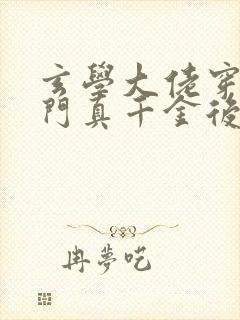 玄學大佬穿
門真千金後
冉夢呓